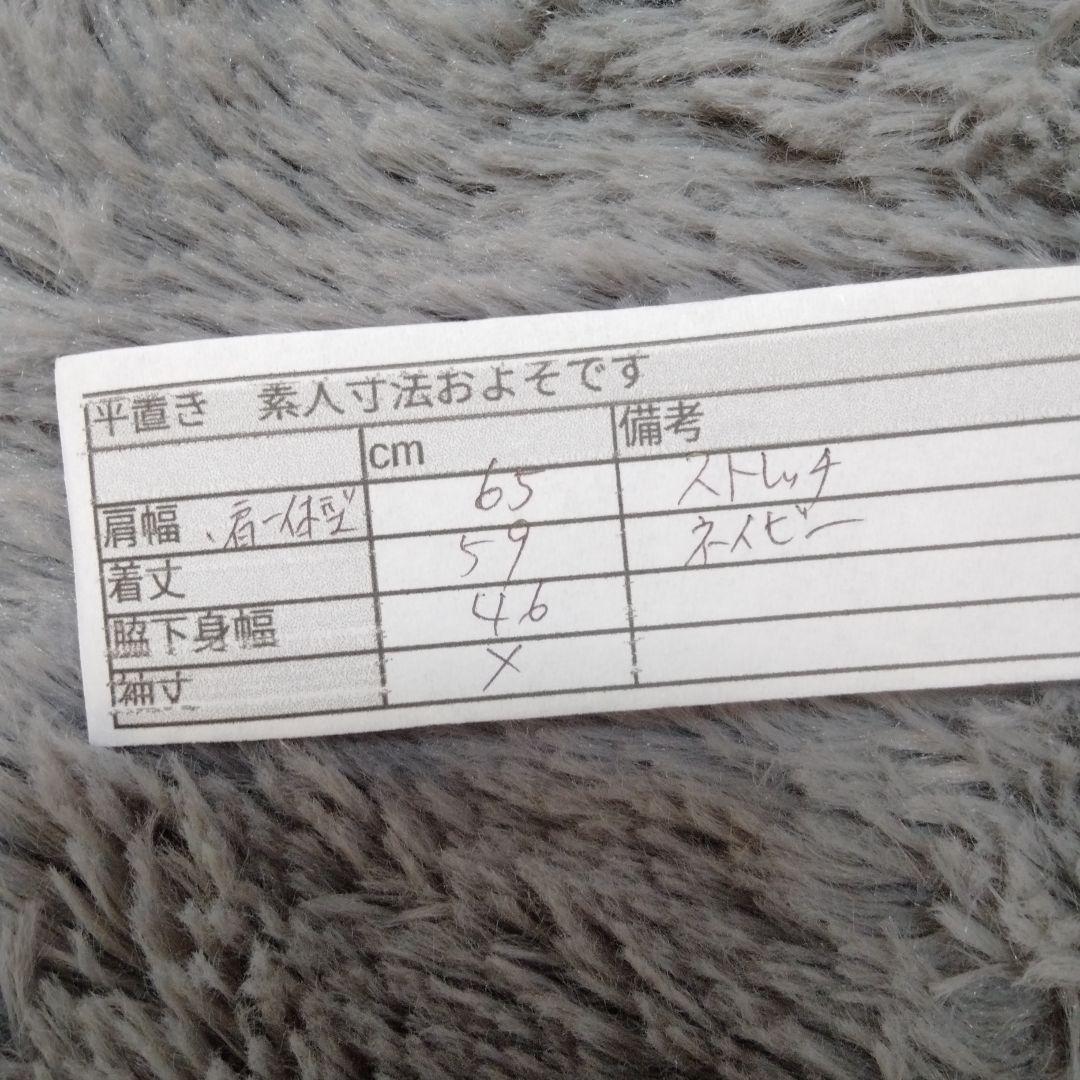 平置き 素人寸法およそです
cm 備考
肩幅、肩一体型 65 ストレッチ
着丈 59 ネイビー
脇下身幅 46
袖丈 ×